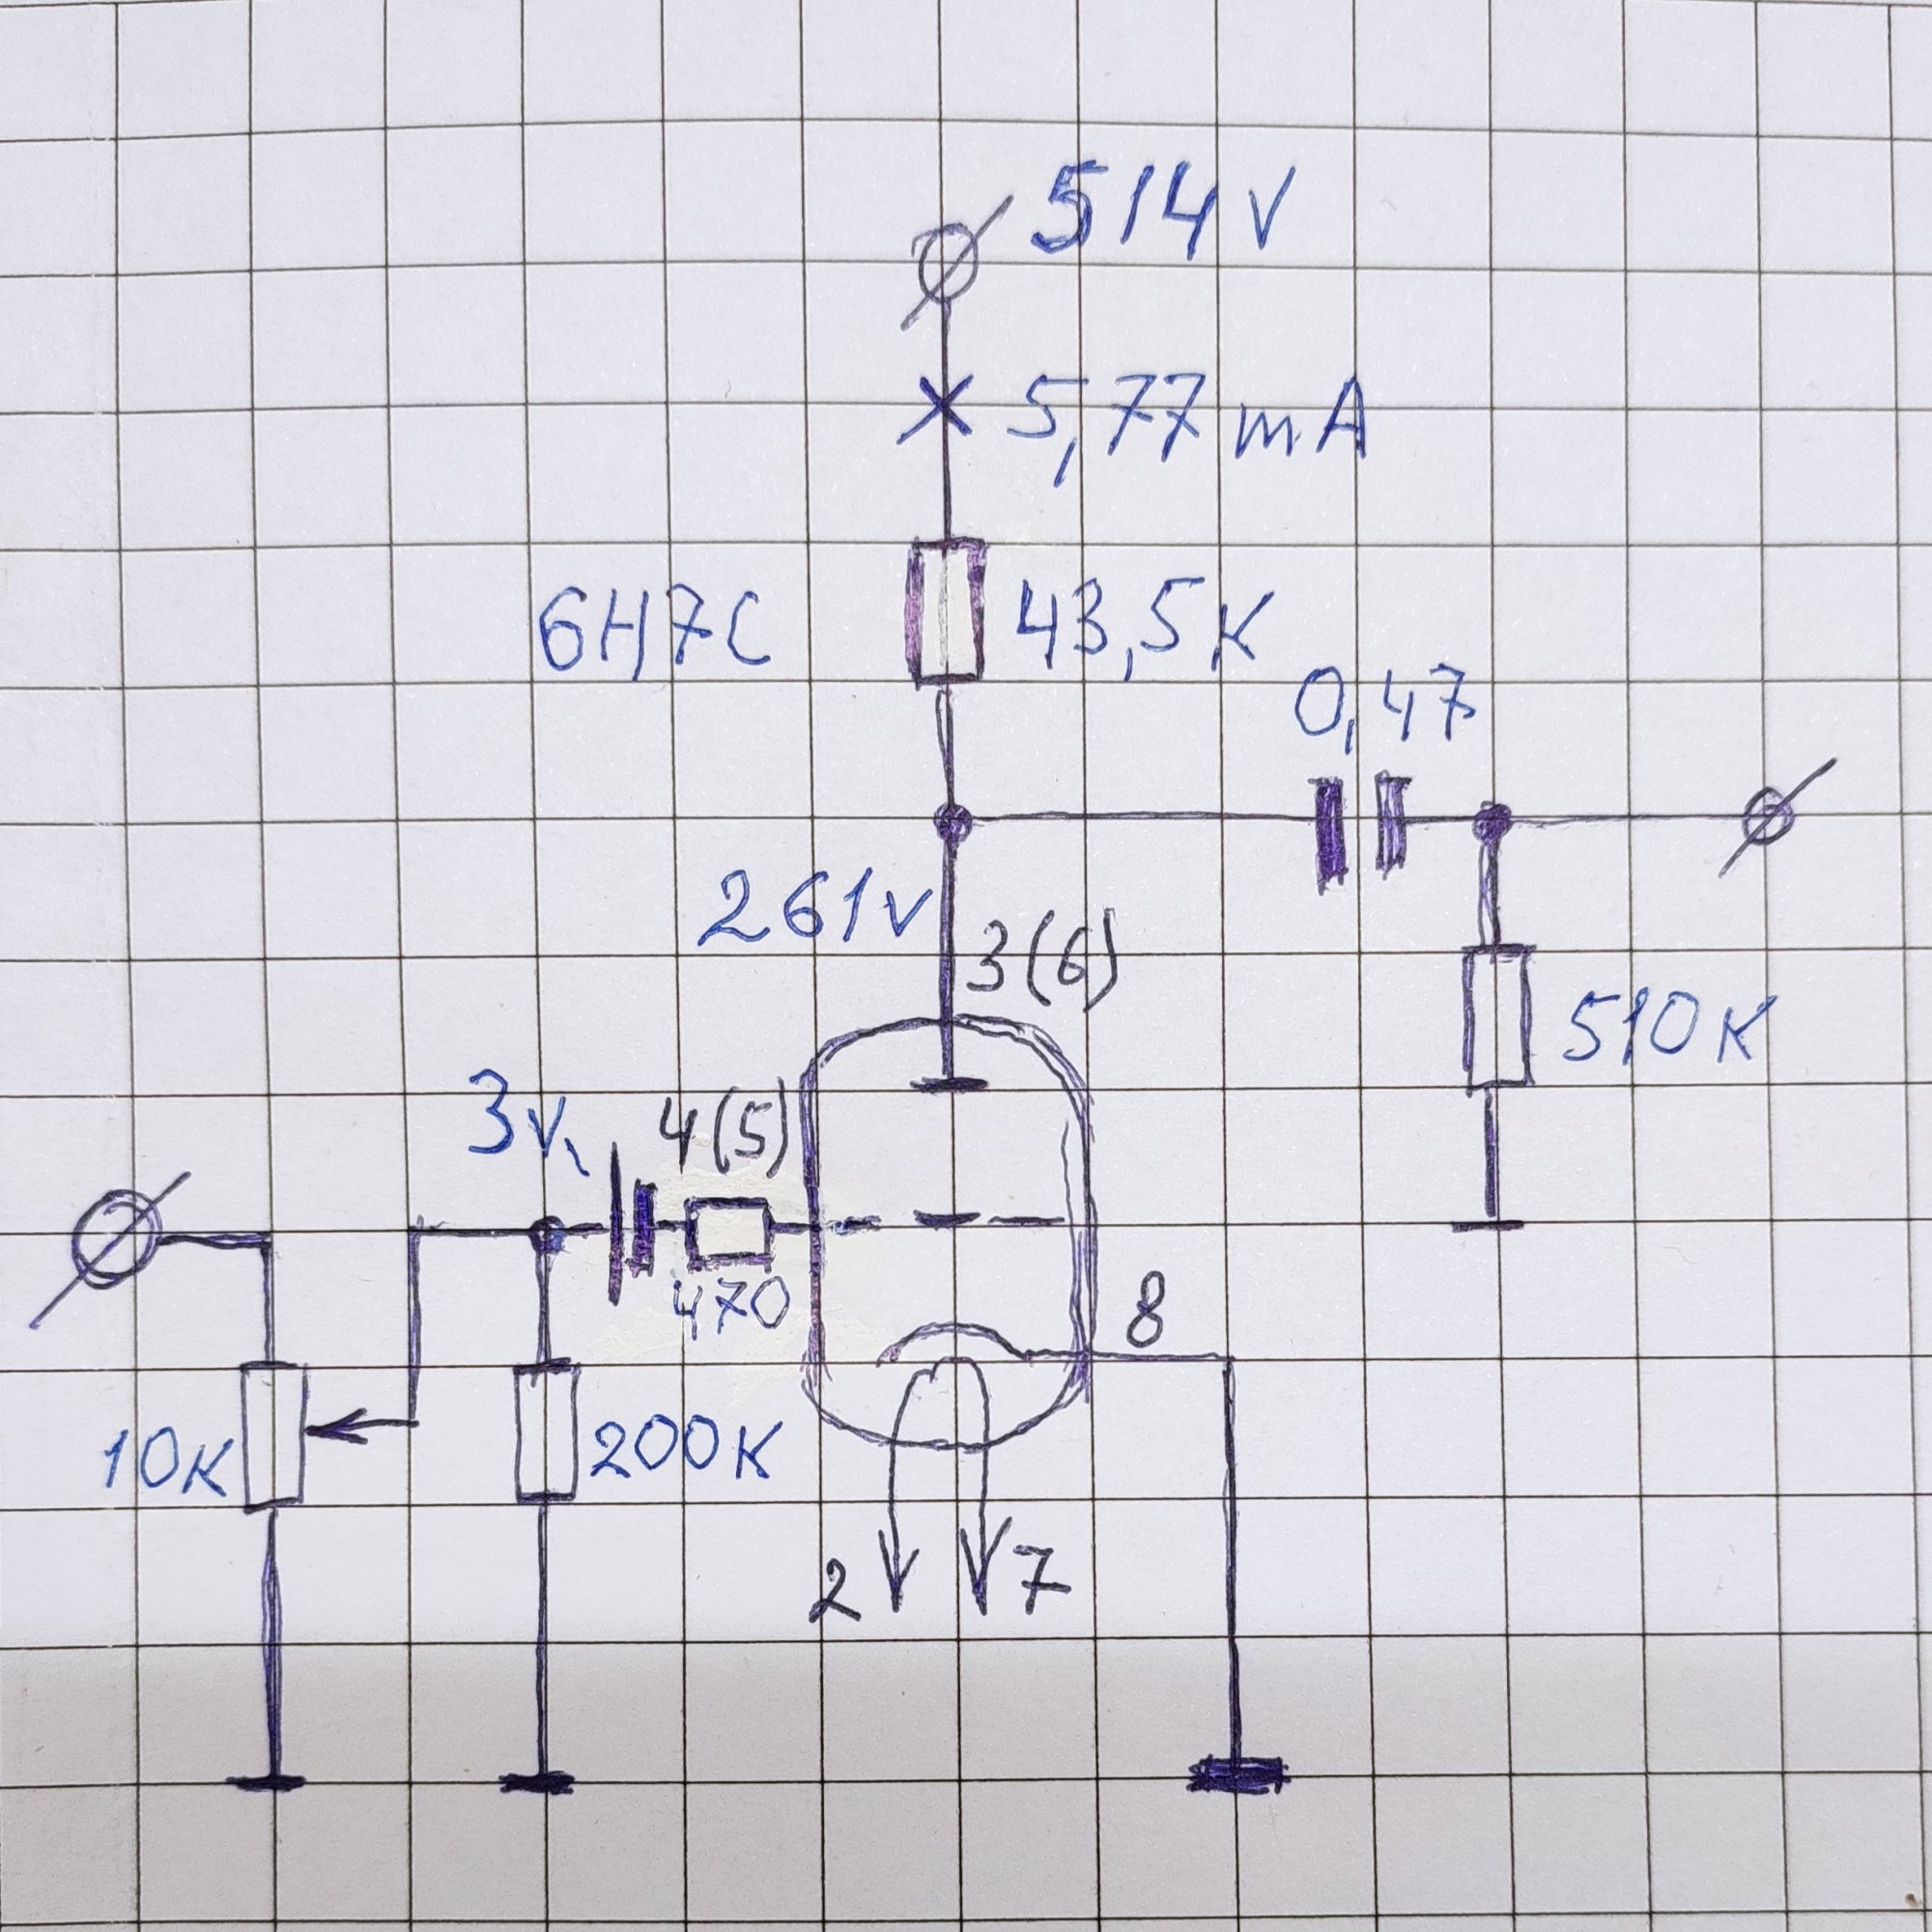 514V
5,77mA
6Н7С
43,5К
0,47
261v
3(6)
510К
3v
4(5)
470
8
10К
200К
2
7